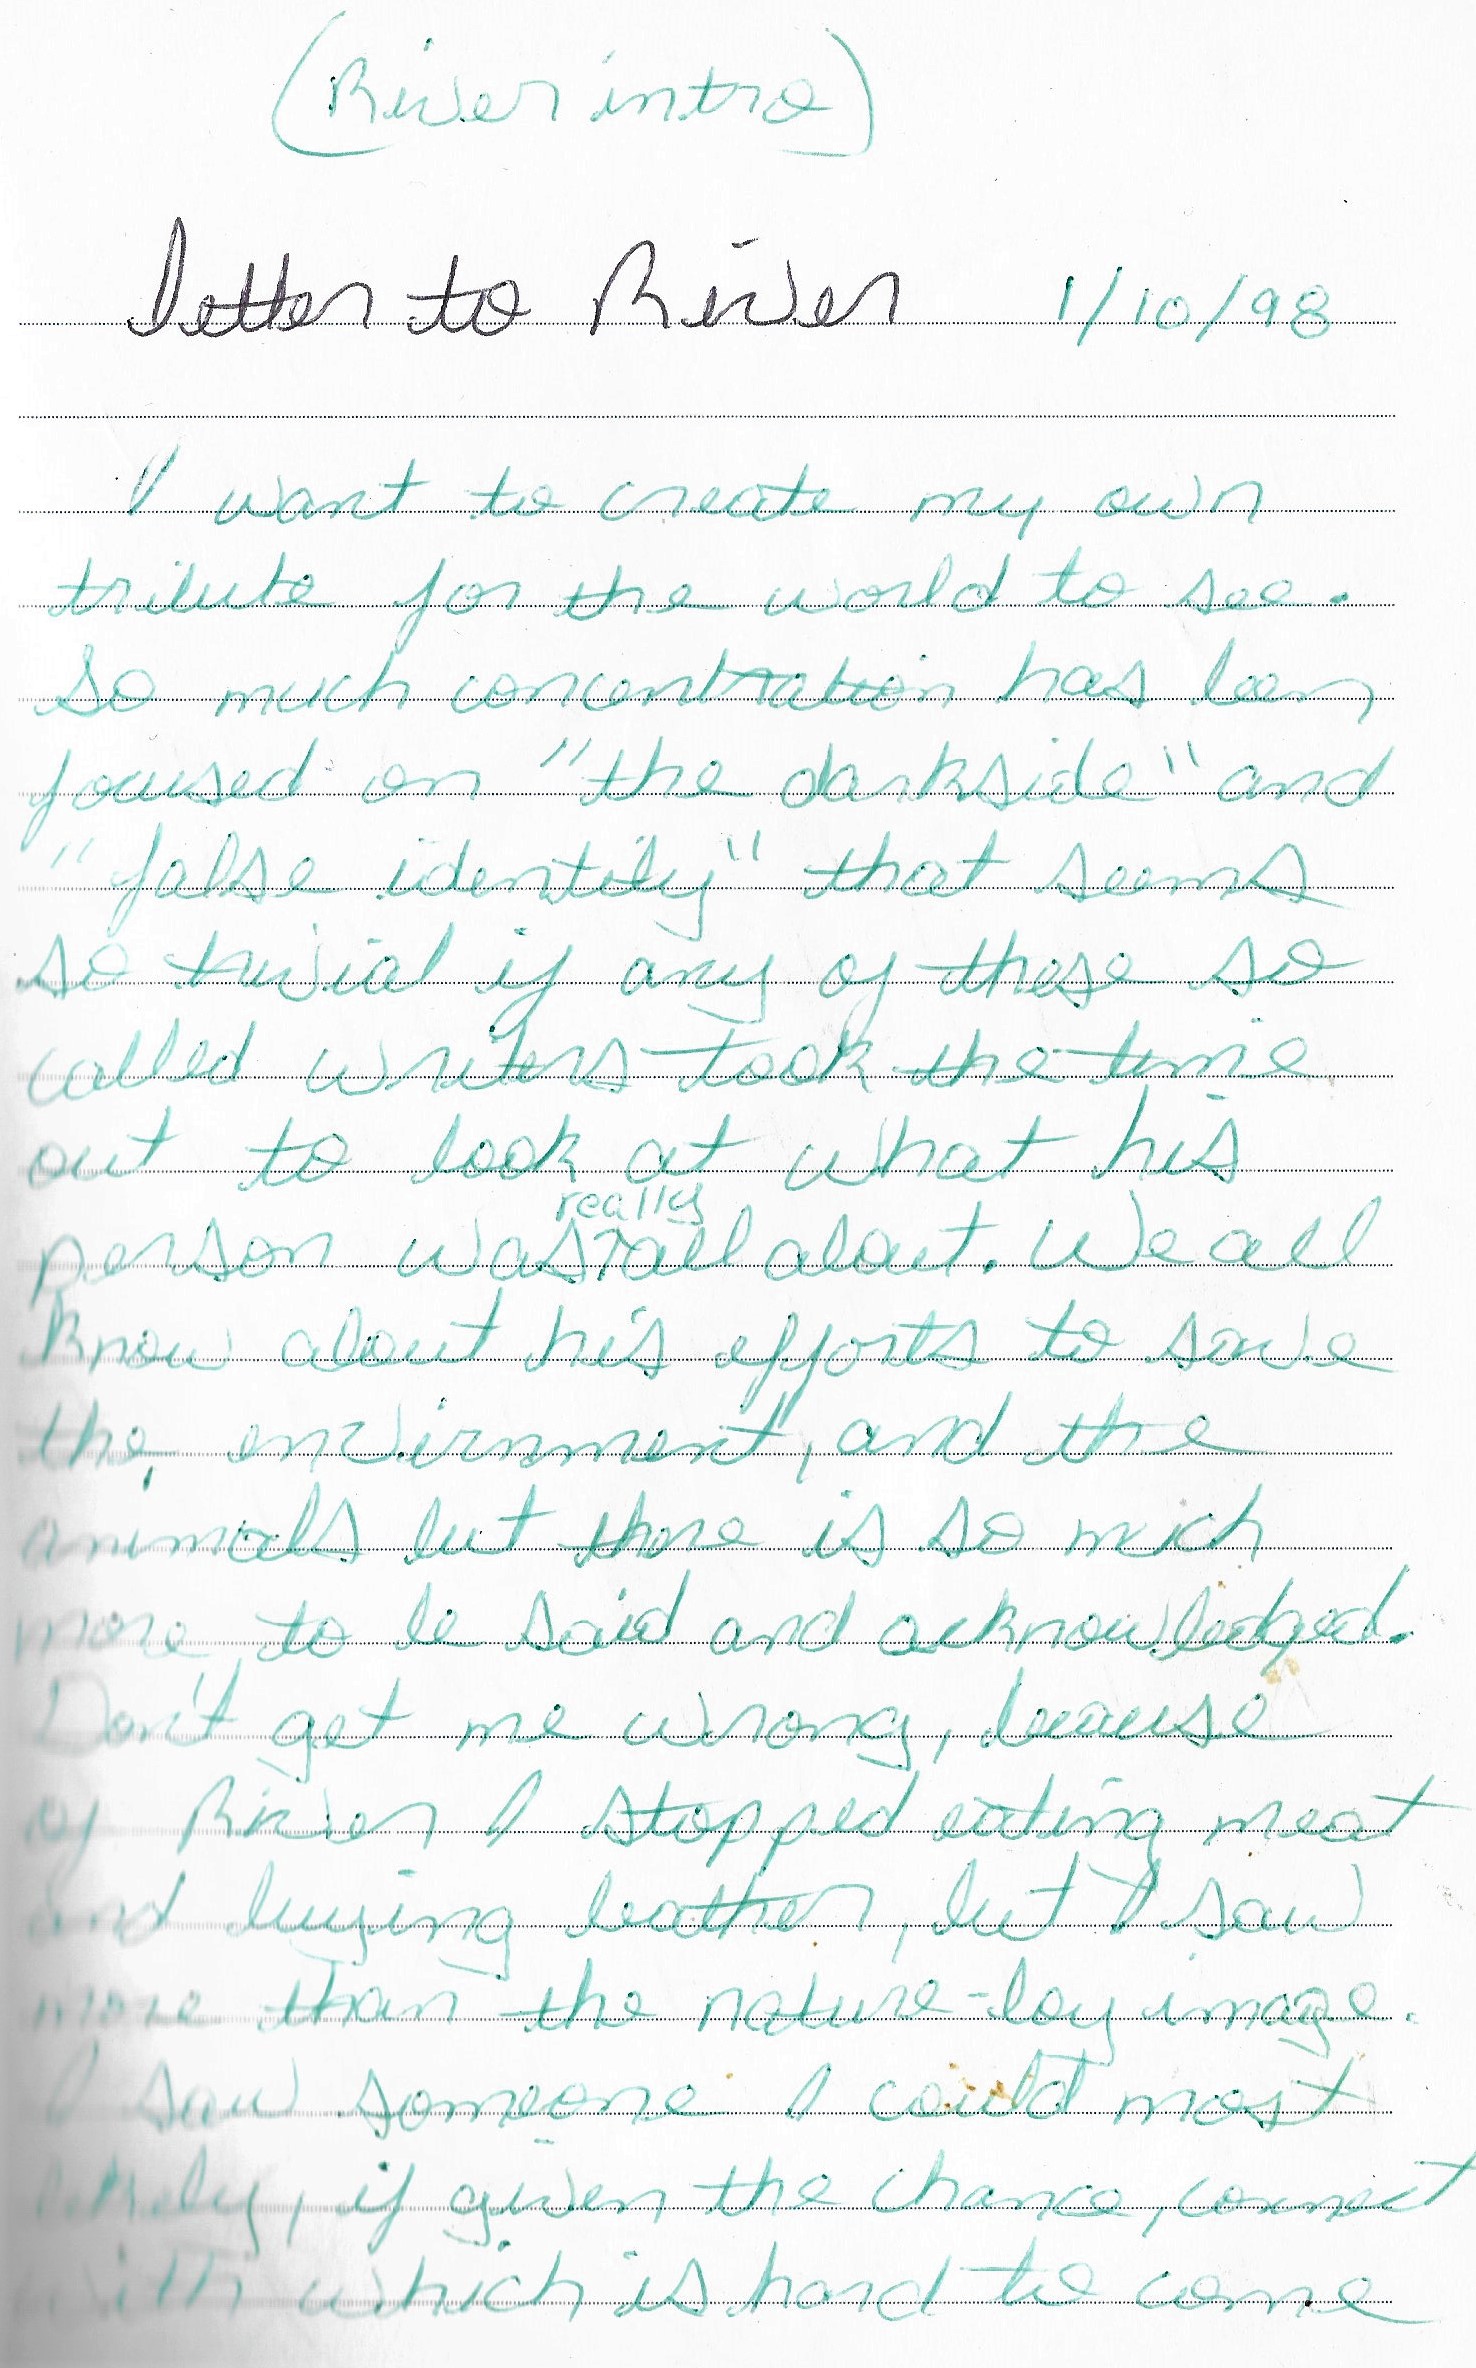 (River intro)
letter to River 1/10/98
I want to create my own
tribute for the world to see.
So much concentration has been
focused on "the darkside" and
"false identity" that seems
so trivial if any of these so
called writers took the time
out to look at what his
person was really all about. We all
know about his efforts to save
the envirnment, and the
animals but there is so much
more to be said and acknowledged.
Don't get me wrong, because
of River I stopped eating meat
and buying leather, but I saw
more than the nature-boy image.
I saw someone I could most
likely, if given the chance, connect
with which is hard to come